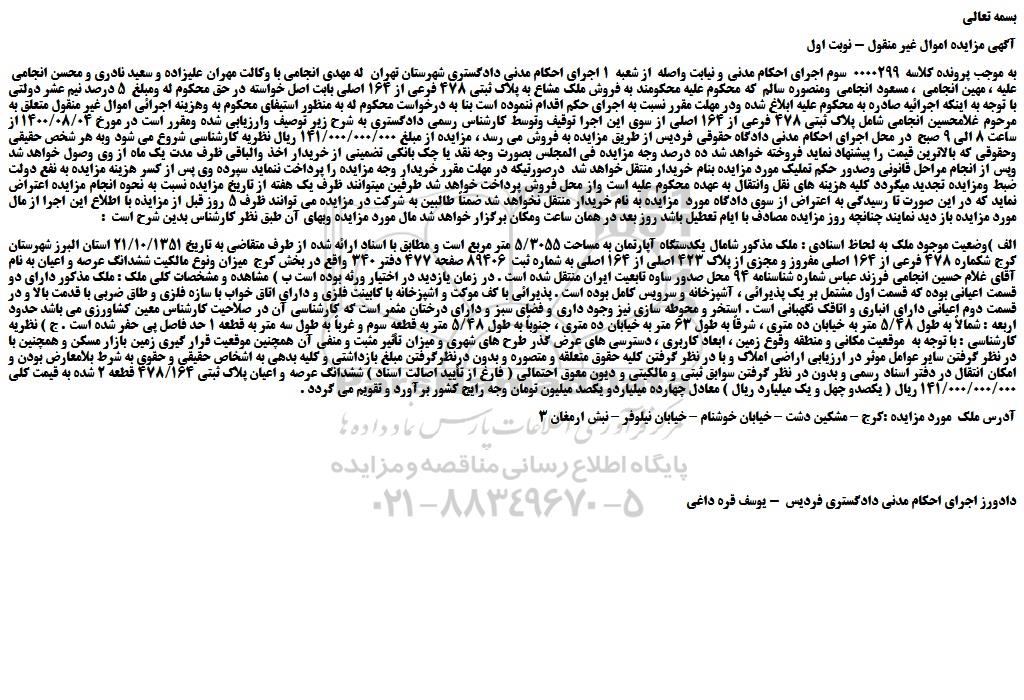 بسمه تعالی
آگهی مزایده اموال غیر منقول – نوبت اول
به موجب پرونده کلاسه ۰۰۰۰۲۹۹ سوم اجرای احکام مدنی و نیابت واصله از شعبه ۱ اجرای احکام مدنی دادگستری شهرستان تهران له مهدی انجامی با وکالت مهران علیزاده و سعید نادری و محسن انجامی
علیه ، مهین انجامی ، مسعود انجامی ومنصوره سالم که محکوم علیه محکومند به فروش ملک مشاع به پلاک ثبتی ۴۷۸ فرعی از ۱۶۴ اصلی بابت اصل خواسته در حق محکوم له ومبلغ ۵ درصد نیم عشر دولتی
با توجه به اینکه اجرائیه صادره به محکوم علیه ابلاغ شده ودر مهلت مقرر نسبت به اجرای حکم اقدام ننموده است بنا به درخواست محکوم له به منظور استیفای محکوم به وهزینه اجرائی اموال غیر منقول متعلق به
مرحوم غلامحسین انجامی شامل پلاک ثبتی ۴۷۸ فرعی از ۱۶۴ اصلی از سوی این اجرا توقیف وتوسط کارشناس رسمی دادگستری به شرح زیر توصیف وارزیابی شده ومقرر است در مورخ ۱۴۰۰/۰۸/۰۴ از
ساعت ۸ الی ۹ صبح در محل اجرای احکام مدنی دادگاه حقوقی فردیس از طریق مزایده به فروش می رسد ، مزایده از مبلغ ۱۴۱/۰۰۰/۰۰۰/۰۰۰ ریال نظریه کارشناسی شروع می شود وبه هر شخص حقیقی
وحقوقی که بالاترین قیمت را پیشنهاد نماید فروخته خواهد شد ده درصد وجه مزایده فی المجلس بصورت وجه نقد یا چک بانکی تضمینی از خریدار اخذ والباقی ظرف مدت یک ماه از وی وصول خواهد شد
وپس از انجام مراحل قانونی وصدور حکم تملیک مورد مزایده بنام خریدار منتقل خواهد شد درصورتیکه در مهلت مقرر خریدار وجه مزایده را پرداخت ننماید سپرده وی پس از کسر هزینه مزایده به نفع دولت
ضبط ومزایده تجدید میگردد کلیه هزینه های نقل وانتقال به عهده محکوم علیه است واز محل فروش پرداخت خواهد شد طرفین میتوانند ظرف یک هفته از تاریخ مزایده نسبت به نحوه انجام مزایده اعتراض
نماید که در این صورت تا رسیدگی به اعتراض از سوی دادگاه مورد مزایده به نام خریدار منتقل نخواهد شد ضمناً طالبین به شرکت در مزایده می توانند ظرف ۵ روز قبل از مزایده با اطلاع این اجرا از مال
مورد مزایده باز دید نمایند چنانچه روز مزایده مصادف با ایام تعطیل باشد روز بعد در همان ساعت ومکان برگزار خواهد شد مال مورد مزایده وبهای آن طبق نظر کارشناس بدین شرح است :
الف )وضعیت موجود ملک به لحاظ اسنادی : ملک مذکور شامال یکدستگاه آپارتمان به مساحت ۵/۳۰۵۵ متر مربع است و مطابق با اسناد ارائه شده از طرف متقاضی به تاریخ ۲۱/۱۰/۱۳۵۱ استان البرز شهرستان
کرج شکماره ۴۷۸ فرعی از ۱۶۴ اصلی مفروز و مجزی از پلاک ۴۲۳ اصلی از ۱۶۴ اصلی به شماره ثبت ۸۹۴۰۶ صفحه ۴۷۷ دفتر ۳۴۰ واقع در بخش کرج میزان ونوع مالکیت ششدانگ عرصه و اعیان به نام
آقای غلام حسین انجامی فرزند عباس شماره شناسنامه ۹۴ محل صدور ساوه تابعیت ایران منتقل شده است . در زمان بازدید در اختیار ورثه بوده است ب ) مشاهده و مشخصات کلی ملک : ملک مذکور دارای دو
قسمت اعیانی بوده که قسمت اول مشتمل بر یک پذیرائی ، آشپزخانه و سرویس کامل بوده است . پذیرائی با کف موکت و اشپزخانه با کابینت فلزی و دارای اتاق خواب با سازه فلزی و طاق ضربی با قدمت بالا و در
قسمت دوم اعیانی دارای انباری و اتاقک نگهبانی است . استخر و محوطه سازی نیز وجود داری و فضای سبز و دارای درختان مثمر است که کارشناسی آن در صلاحیت کارشناس معین کشاورزی می باشد حدود
اربعه : شمالاً به طول ۵/۴۸ متر به خیابان ده متری ، شرقاً به طول ۶۳ متر به خیابان ده متری ، جنوباً به طول ۵/۴۸ متر به قطعه سوم و غرباً به طول سه متر به قطعه ۱ حد فاصل پی حفر شده است . ج ) نظریه
کارشناسی : با توجه به موقعیت مکانی و منطقه وقوع زمین ، ابعاد کاربری ، دسترسی های عرض گذر طرح های شهری و میزان تأثیر مثبت و منفی آن همچنین موقعیت قرار گیری زمین بازار مسکن و همچنین با
در نظر گرفتن سایر عوامل موثر در ارزیابی اراضی املاک و با در نظر گرفتن کلیه حقوق متعلقه و متصوره و بدون درنظر گرفتن مبلغ بازداشتی و کلیه بدهی به اشخاص حقیقی و حقوق به شرط بلامعارض بودن و
امکان انتقال در دفتر اسناد رسمی و بدون در نظر گرفتن سوابق ثبتی و مالکیتی و دیون معوق احتمالی ( فارغ از تأیید اصالت اسناد ) ششدانگ عرصه و اعیان پلاک ثبتی ۴۷۸/۱۶۴ قطعه ۲ شده به قیمت کلی
۱۴۱/۰۰۰/۰۰۰/۰۰۰ ریال ( یکصدو چهل و یک میلیارد ریال ) معادل چهارده میلیاردو یکصد میلیون تومان وجه رایج کشور بر آورد و تقویم می گردد .
آدرس ملک مورد مزایده :کرج – مشکین دشت – خیابان خوشنام – خیابان نیلوفر – نبش ارمغان ۳
مرکز فرآوری اطلاعات پارس نماد داده ها
پایگاه اطلاع رسانی مناقصه و مزایده
۰۲۱-۸۸۳۴۹۶۷۰-۵
دادورز اجرای احکام مدنی دادگستری فردیس – یوسف قره داغی